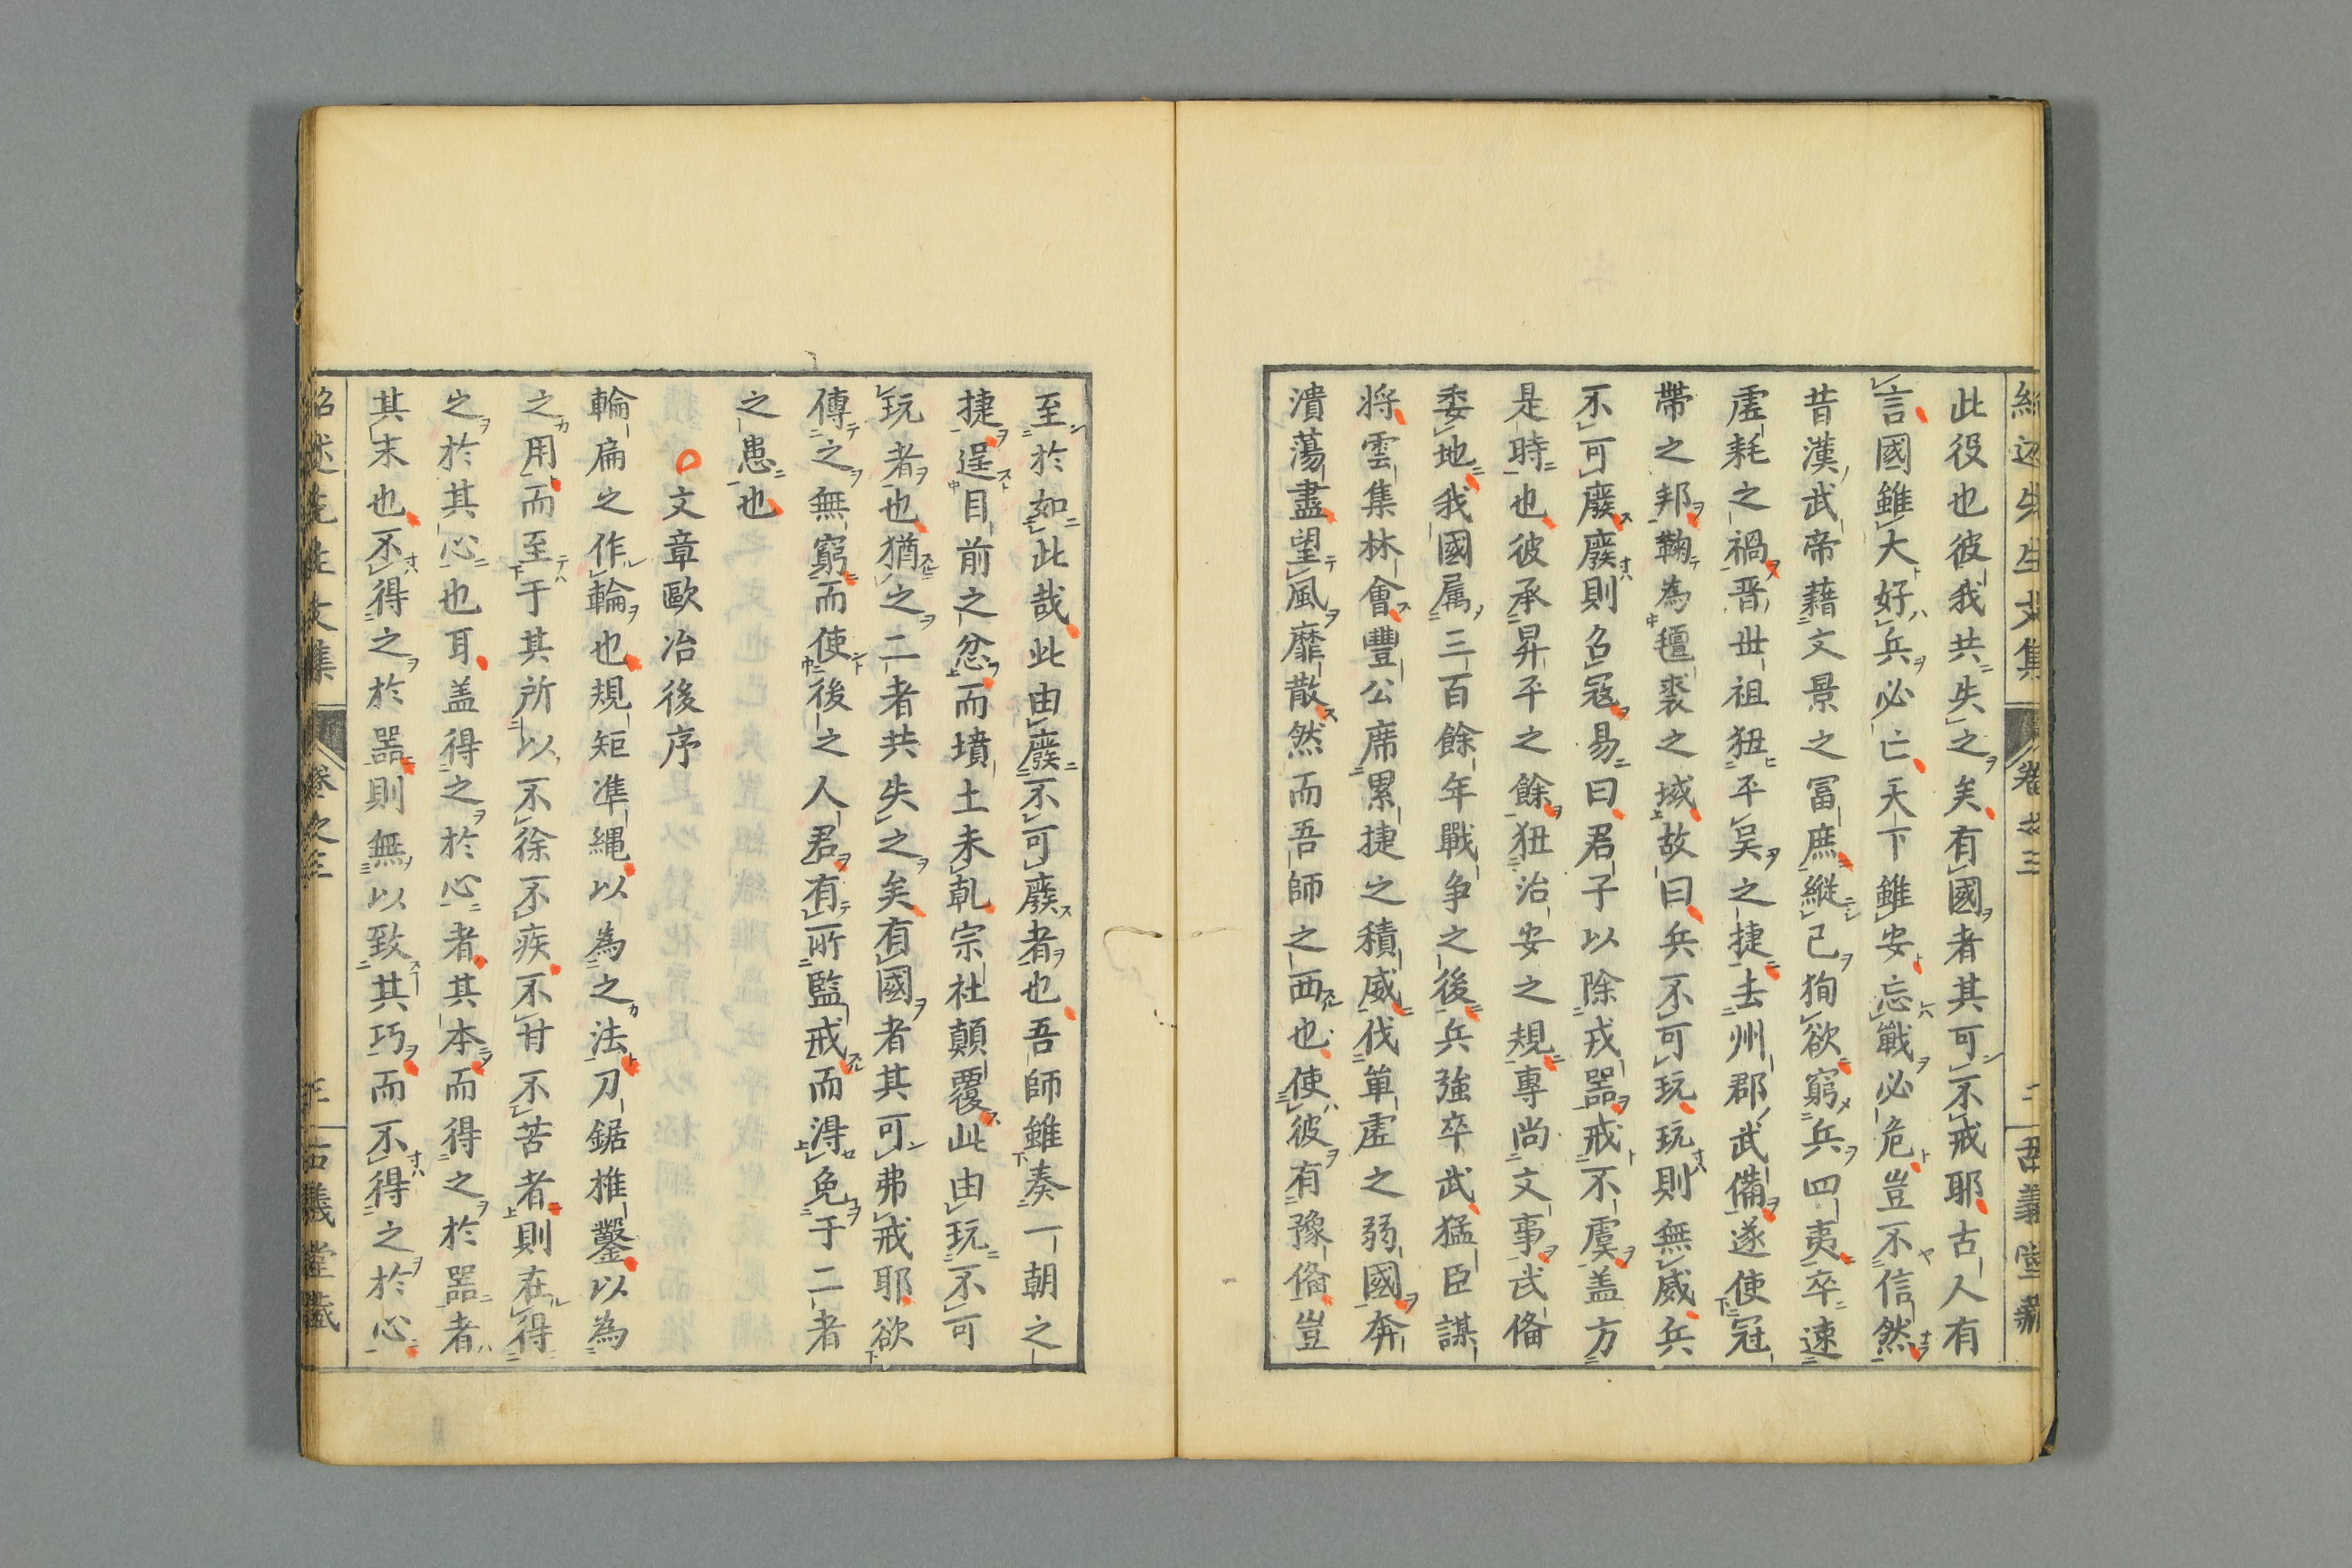 此役也彼我共失之矣有國者其可不戒耶古人有
言國雖大好兵必亡天下雖安忘戰必危豈不信然
昔漢武帝藉文景之冨庶縱己狥欲窮兵四夷卒速
虚耗之禍晋世祖狃平吴之捷去州郡武備遂使冠
帶之邦鞠為氊裘之域故曰兵不可玩玩則無威兵
不可廢廢則召冦易曰君子以除戎器戒不虞盖方
是時也彼承昇平之餘狃治安之規專尚文事武俻
委地我國属三百餘年戰争之後兵強卒武猛臣謀
將雲集林會豐公席累捷之積威伐單虚之弱國奔
潰蕩盡望風靡散然而吾師之西也使彼有豫俻豈
至於如此哉此由廢不可廢者也吾師雖奏一朝之
捷逞目前之忿而墳土未乹宗社顛覆此由玩不可
玩者也猶之二者共失之矣有國者其可弗戒耶欲
傳之無窮而使後之人君有所監戒而得免于二者
之患也
文章歐冶後序
輪扁之作輪也規矩準縄以為之法刀鋸椎鑿以為
之用而至于其所以不徐不疾不甘不苦者則在得
之於其心也耳盖得之於心者其本而得之於器者
其末也不得之於器則無以致其巧而不得之於心
紹述先生文集 卷之三 三 古義堂蔵